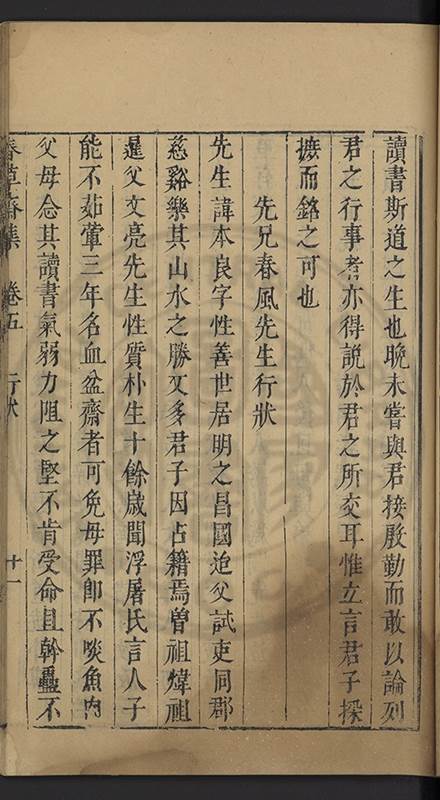 讀書斯道之生也晚未嘗與君接殷勤而敢以論列
君之行事者亦得說於君之所交耳惟立言君子採
摭而銘之可也
先兄春風先生行狀
先生諱本良字性善世居明之昌國迨父試吏同郡
慈谿樂其山水之勝又多君子因占籍焉曾祖煒祖
暹父文亮先生性質朴生十餘歲聞浮屠氏言人子
能不茹葷三年名血盆齋者可免母罪即不啖魚肉
父母念其讀書氣弱力阻之堅不肯受命且幹蠱不
春草齋集 卷五 行狀 十一